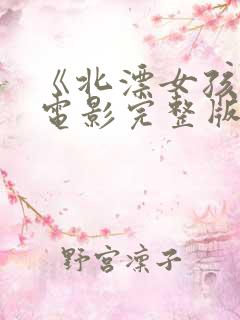 《北漂女孩
电影完整版
野宫凛子